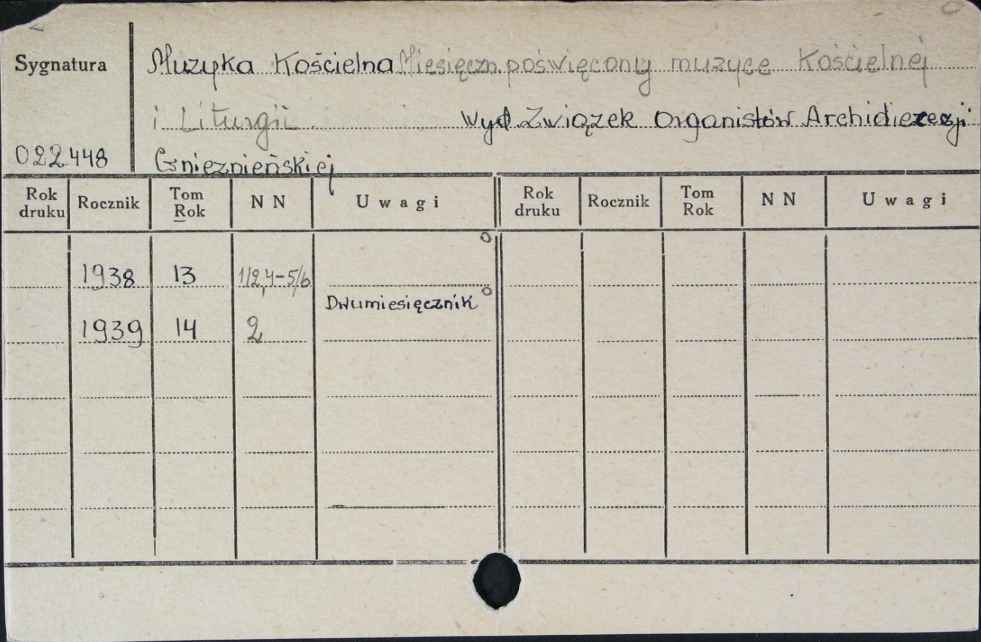 Sygnatura
Muzyka Kościelna Miesięczn. poświęcony muzyce Kościelnej
i Liturgii. wyd. Związek Organistów Archidiecezji
022448 Gnieźnieńskiej
Rok druku Rocznik Tom Rok NN Uwagi Rok druku Rocznik Tom Rok NN Uwagi
1938 13 1/2,4-5/6
Dwumiesięcznik
1939 14 2